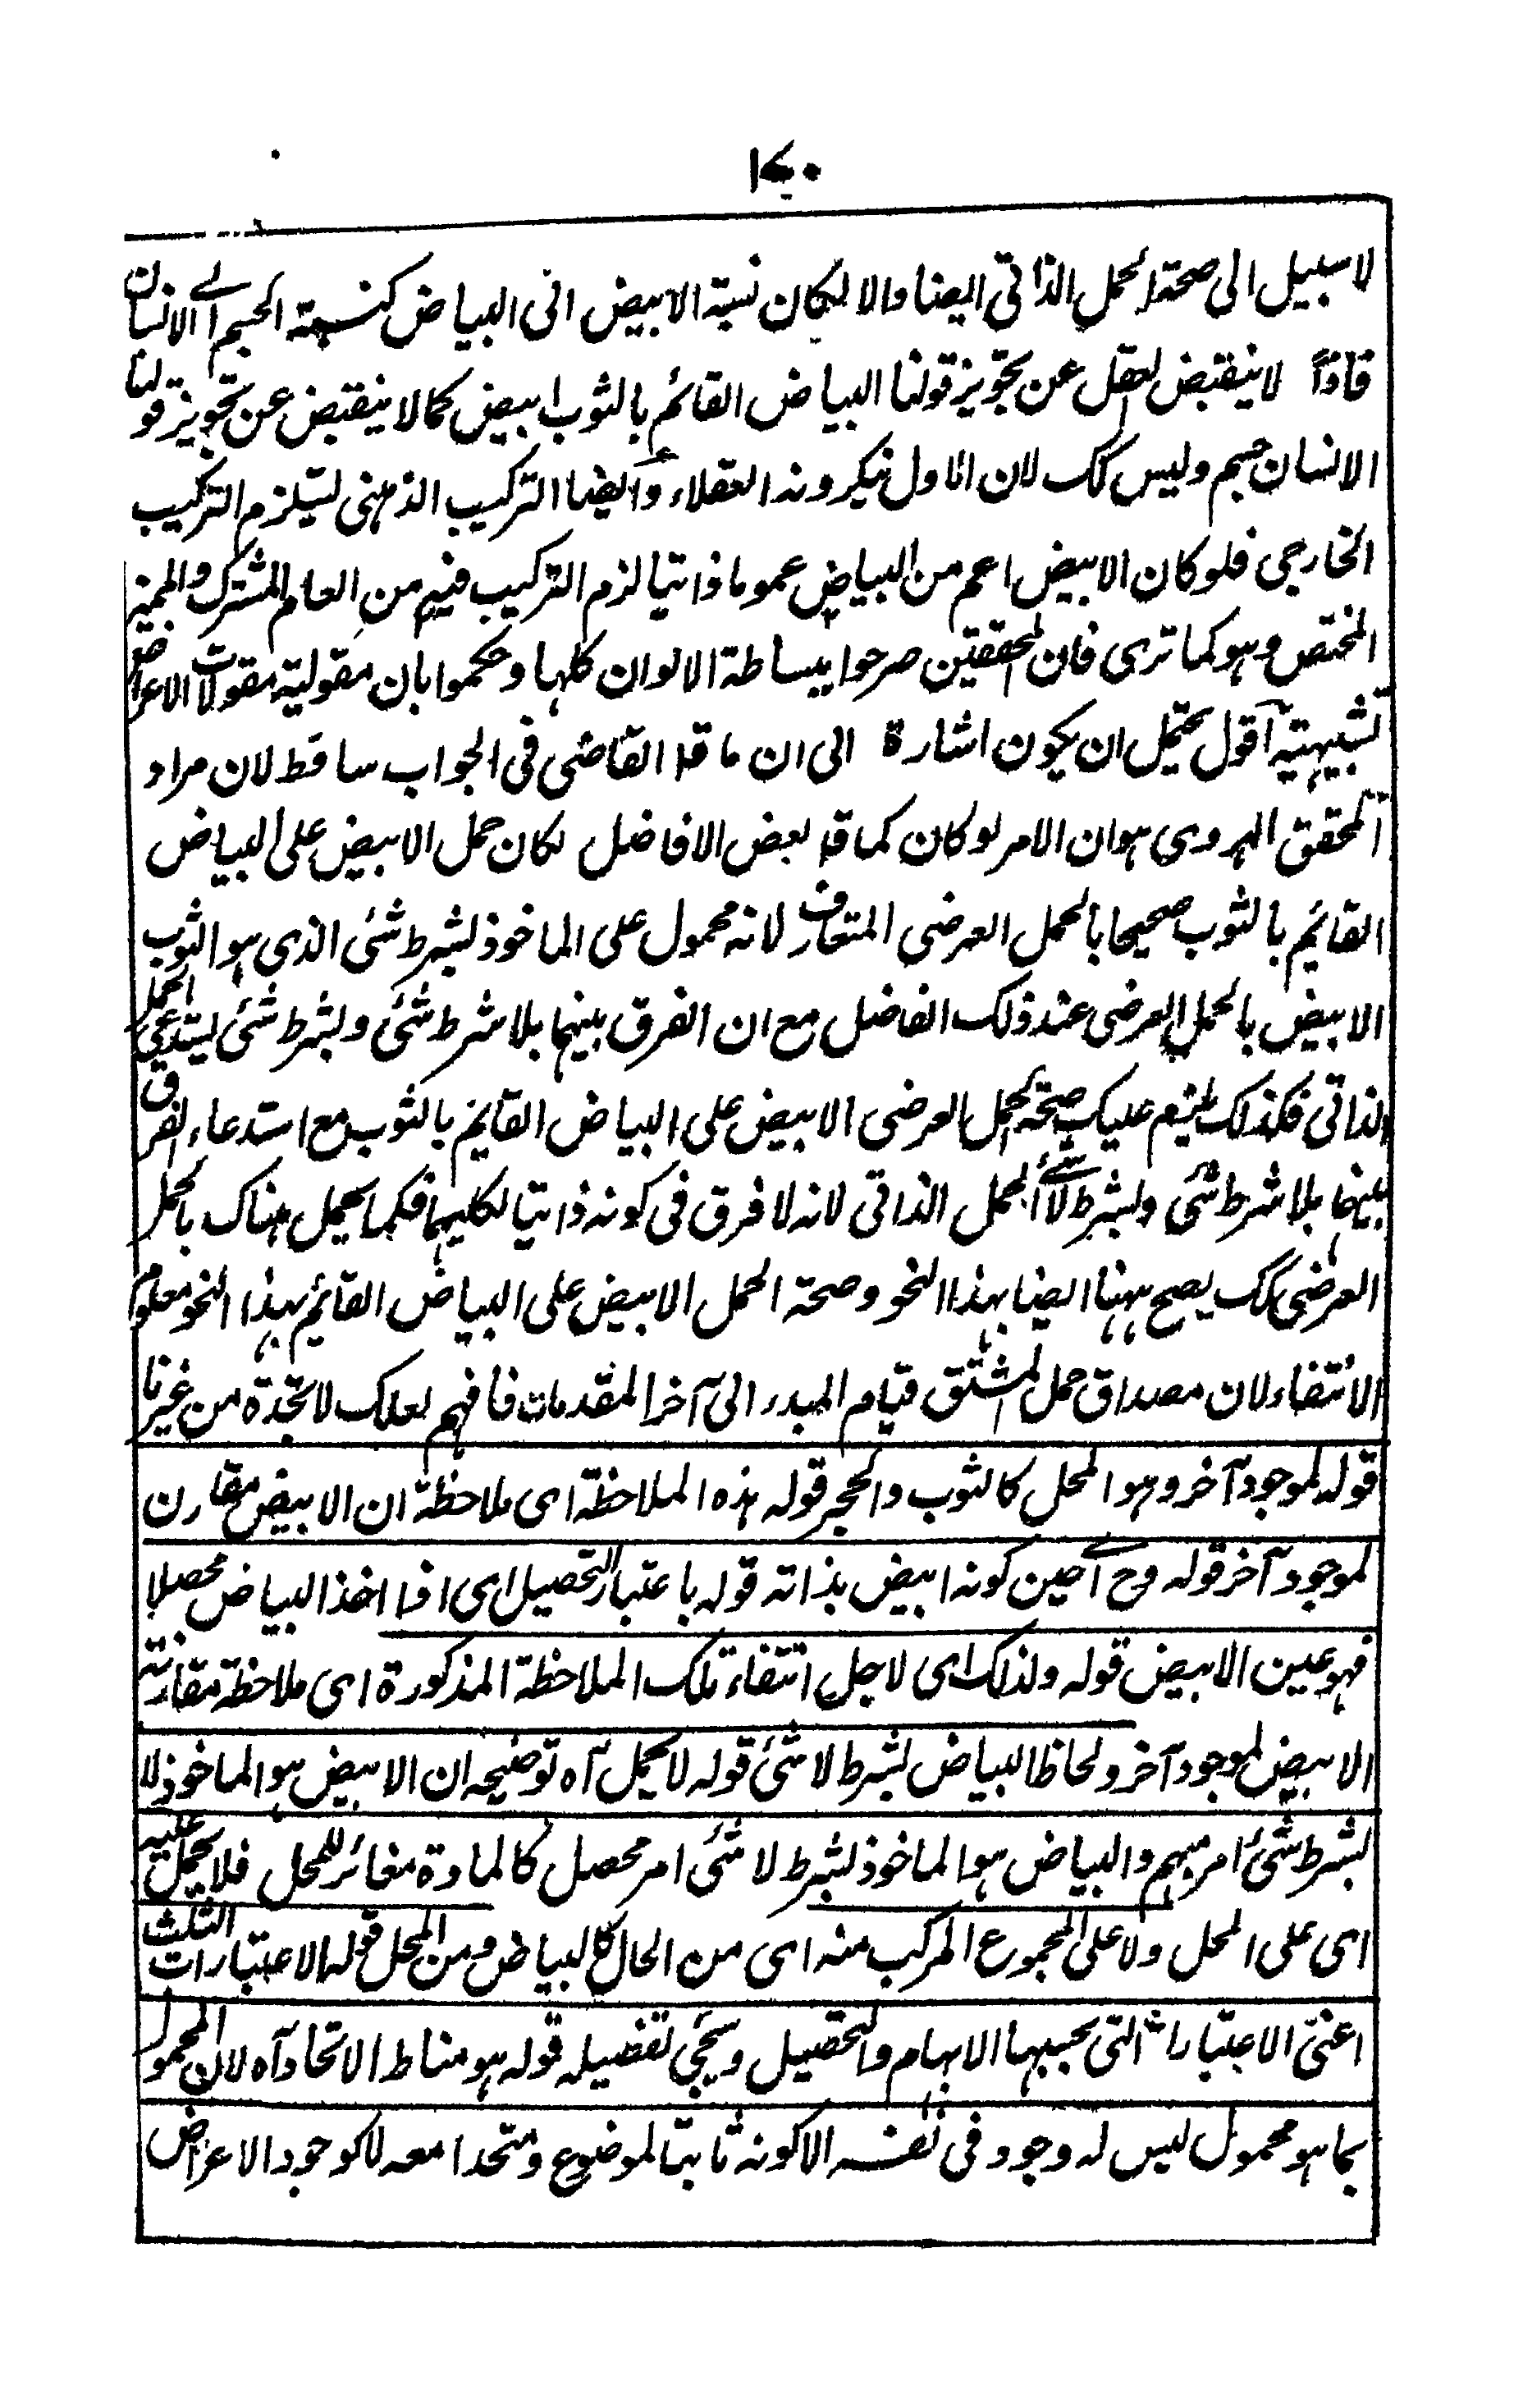 ١٧٠
لا سبيل الى صحة الحمل الذاتى ايضا والا لكان نسبة الابيض الى البياض كنسبة الجسم الى الانسان
فاذاً لا ينقبض العقل عن تجويز قولنا البياض القائم بالثوب ابيض كما لا ينقبض عن تجويز قولنا
الانسان جسم وليس كك لان الاول ينكرونه العقلاء وايضا التركيب الذهنى يستلزم التركيب
الخارجى فلو كان الابيض اعم من البياض عموما ذاتيا لزم التركيب فيه من العام المشترك والمميز
المختص وهو كما ترى فان المحققين صرحوا ببساطة الالوان كلها وحكموا بان مقولية مقولات الاعراض
تشبيهية اقول يحتمل ان يكون اشارة الى ان ما قا القاضى فى الجواب ساقط لان مراد
المحقق الهروى هو ان الامر لو كان كما قا بعض الافاضل لكان حمل الابيض على البياض
القائم بالثوب صحيحا بالحمل العرضى المتعارف لانه محمول على الماخوذ بشرط شئ الذى هو الثوب
الابيض بالحمل العرضى عند ذلك الفاضل مع ان الفرق بينهما بلا شرط شئ وبشرط شئ يستدعى الحمل
الذاتى فكذلك يلزم عليك صحة الحمل العرضى الابيض على البياض القايم بالثوب مع استدعاء الفرق
بينهما بلا شرط شئ وبشرط لا شئ الحمل الذاتى لانه لا فرق فى كونه ذاتيا لكليهما فكما يحمل هناك بالحمل
العرضى كك يصح ههنا ايضا بهذا النحو وصحة الحمل الابيض على البياض القائم بهذا النحو معلوم
الانتفاء لان مصداق حمل المشتق قيام المبدء الى آخر المقدمات فافهم لعلك لا تجده من غيرنا
قوله لموجود آخر وهو المحل كالثوب والحجر قوله هذه الملاحظة اى ملاحظة ان الابيض مقارن
لموجود آخر قوله وح اى حين كونه ابيض بذاته قوله باعتبار التحصيل اى اذا اخذ البياض محصلا
فهو عين الابيض قوله ولذلك اى لاجل انتفاء تلك الملاحظة المذكورة اى ملاحظة مقارنة
الابيض لموجود آخر ولحاظ البياض بشرط لا شئ قوله لا يحمل آه توضيحه ان الابيض هو الماخوذ لا
بشرط شئ امر مبهم والبياض هو الماخوذ بشرط لا شئ امر محصل كالمادة مغائر للمحل فلا يحمل عليه
اى على المحل ولا على المجموع المركب منه اى من الحال كالبياض ومن المحل قوله الاعتبارات الثلث
اعنى الاعتبارات التى بحسبها الابهام والتحصيل وسيجئ تفصيله قوله هو مناط الاتحاد آه لان المحمول
بما هو محمول ليس له وجود فى نفسه الا كونه ثابتا لموضوع ومتحدا معه لا كوجود الاعراض